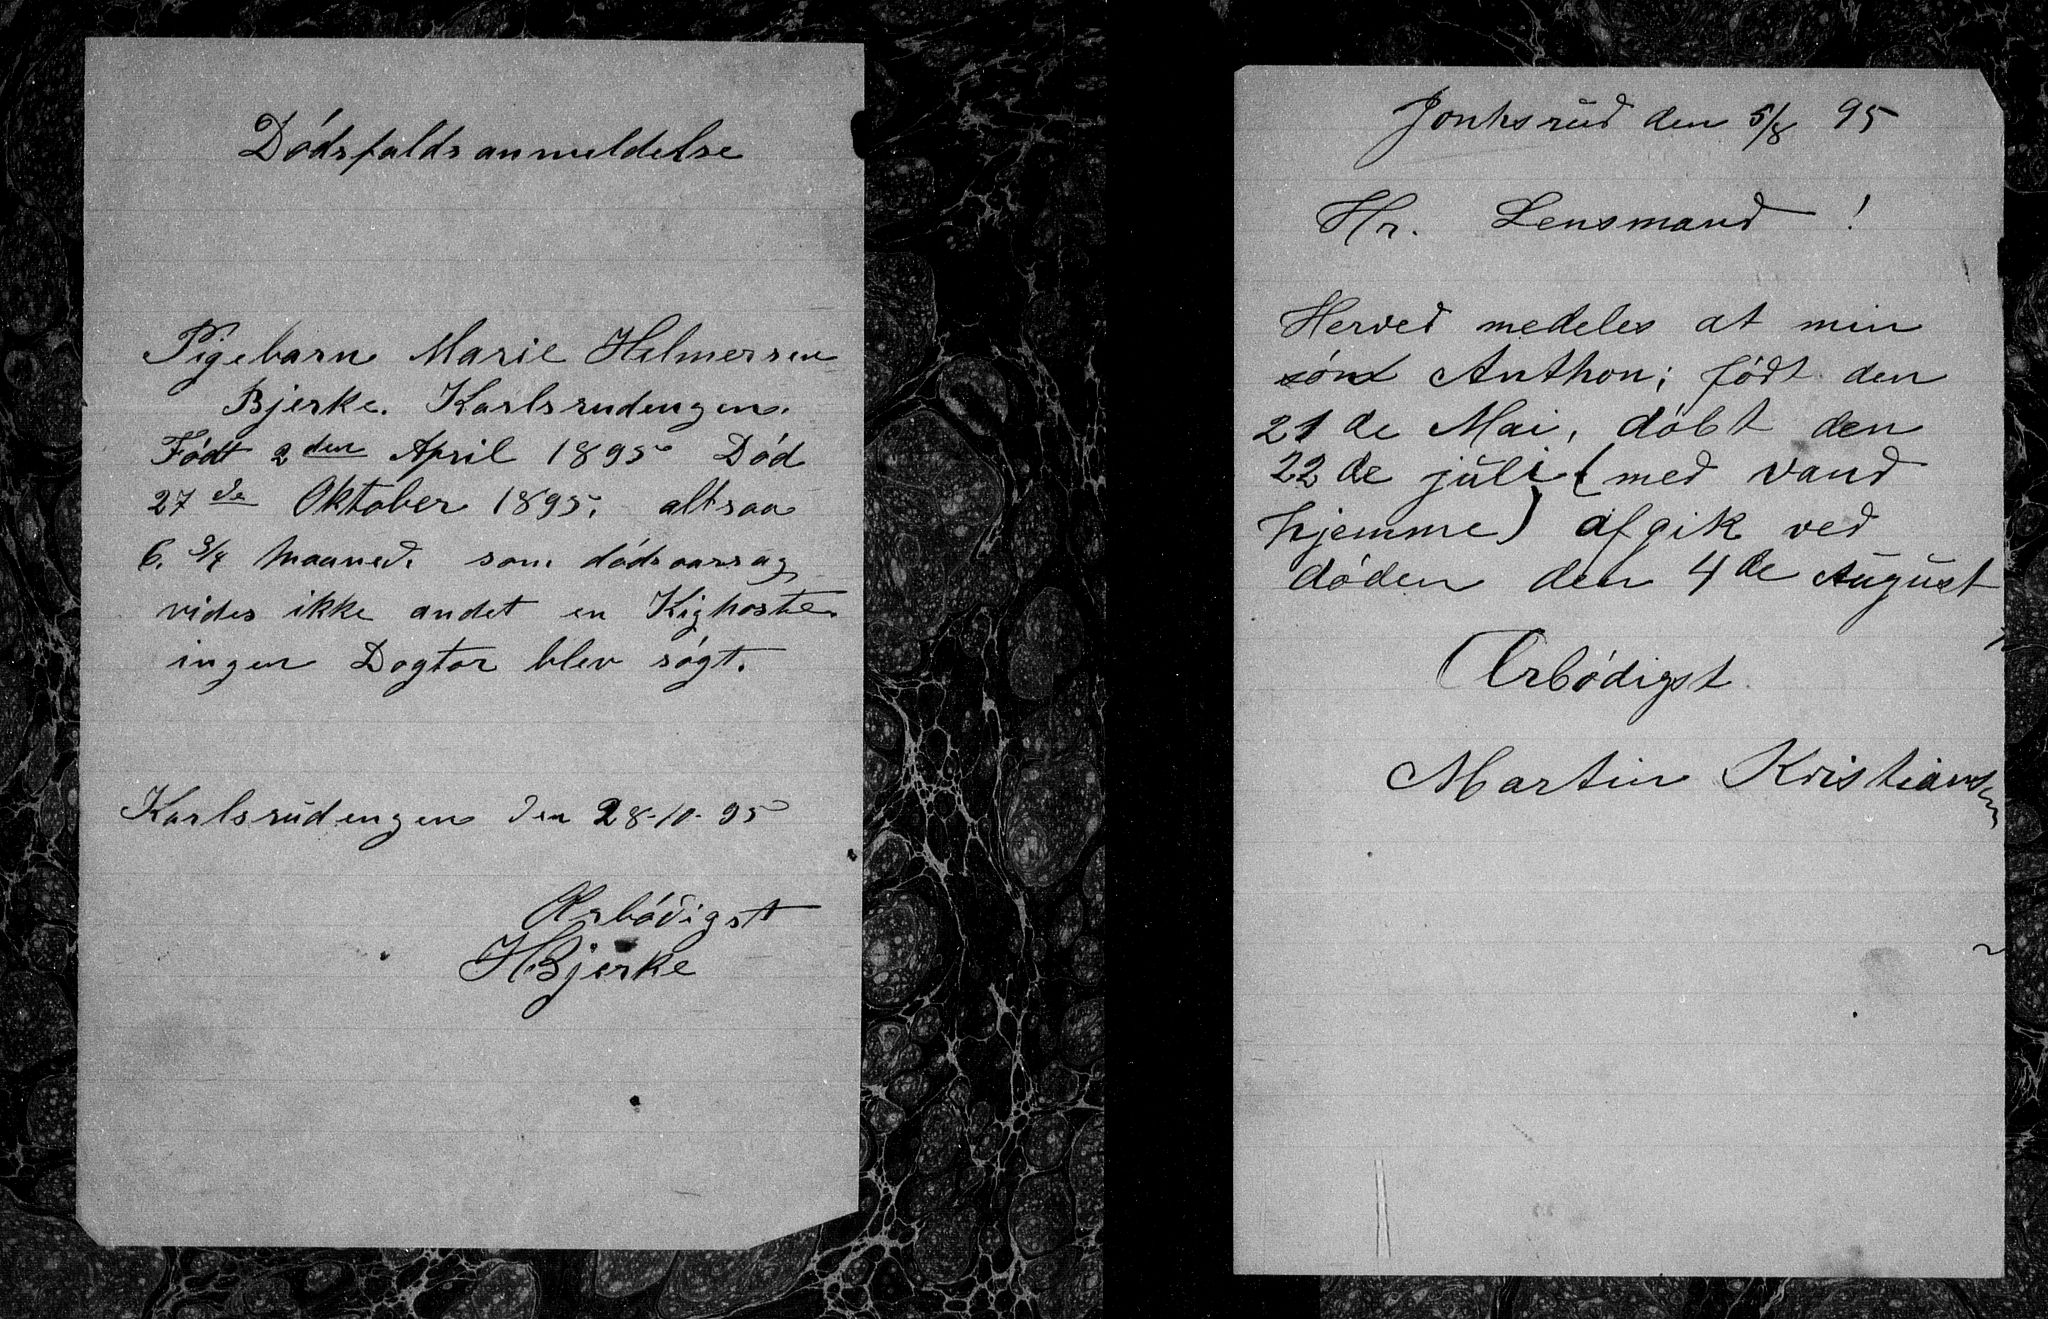 Dödsfaldsanmeldelse
Pigebarn Marie Helmersen
Bjerke. Karlsrudengen.
Födt 2den April 1895 Död
27de Oktober 1895. altsaa
6. 3/4 Maaned. som dödsaarsag
vides ikke andet en Kighoste.
ingen Dogtor blev sögt.
Karlsrudengen den 28-10-95
Ærbödigst
HBjerke
Jonksrud den 5/8 95
Hr. Lensmand !
Herved medeles at min
sön Anthon; födt den
21 de Mai, döbt den
22 de juli (med vand
hjemme) afgik ved
döden den 4 de August
Ærbödigst
Martin Kristiansen